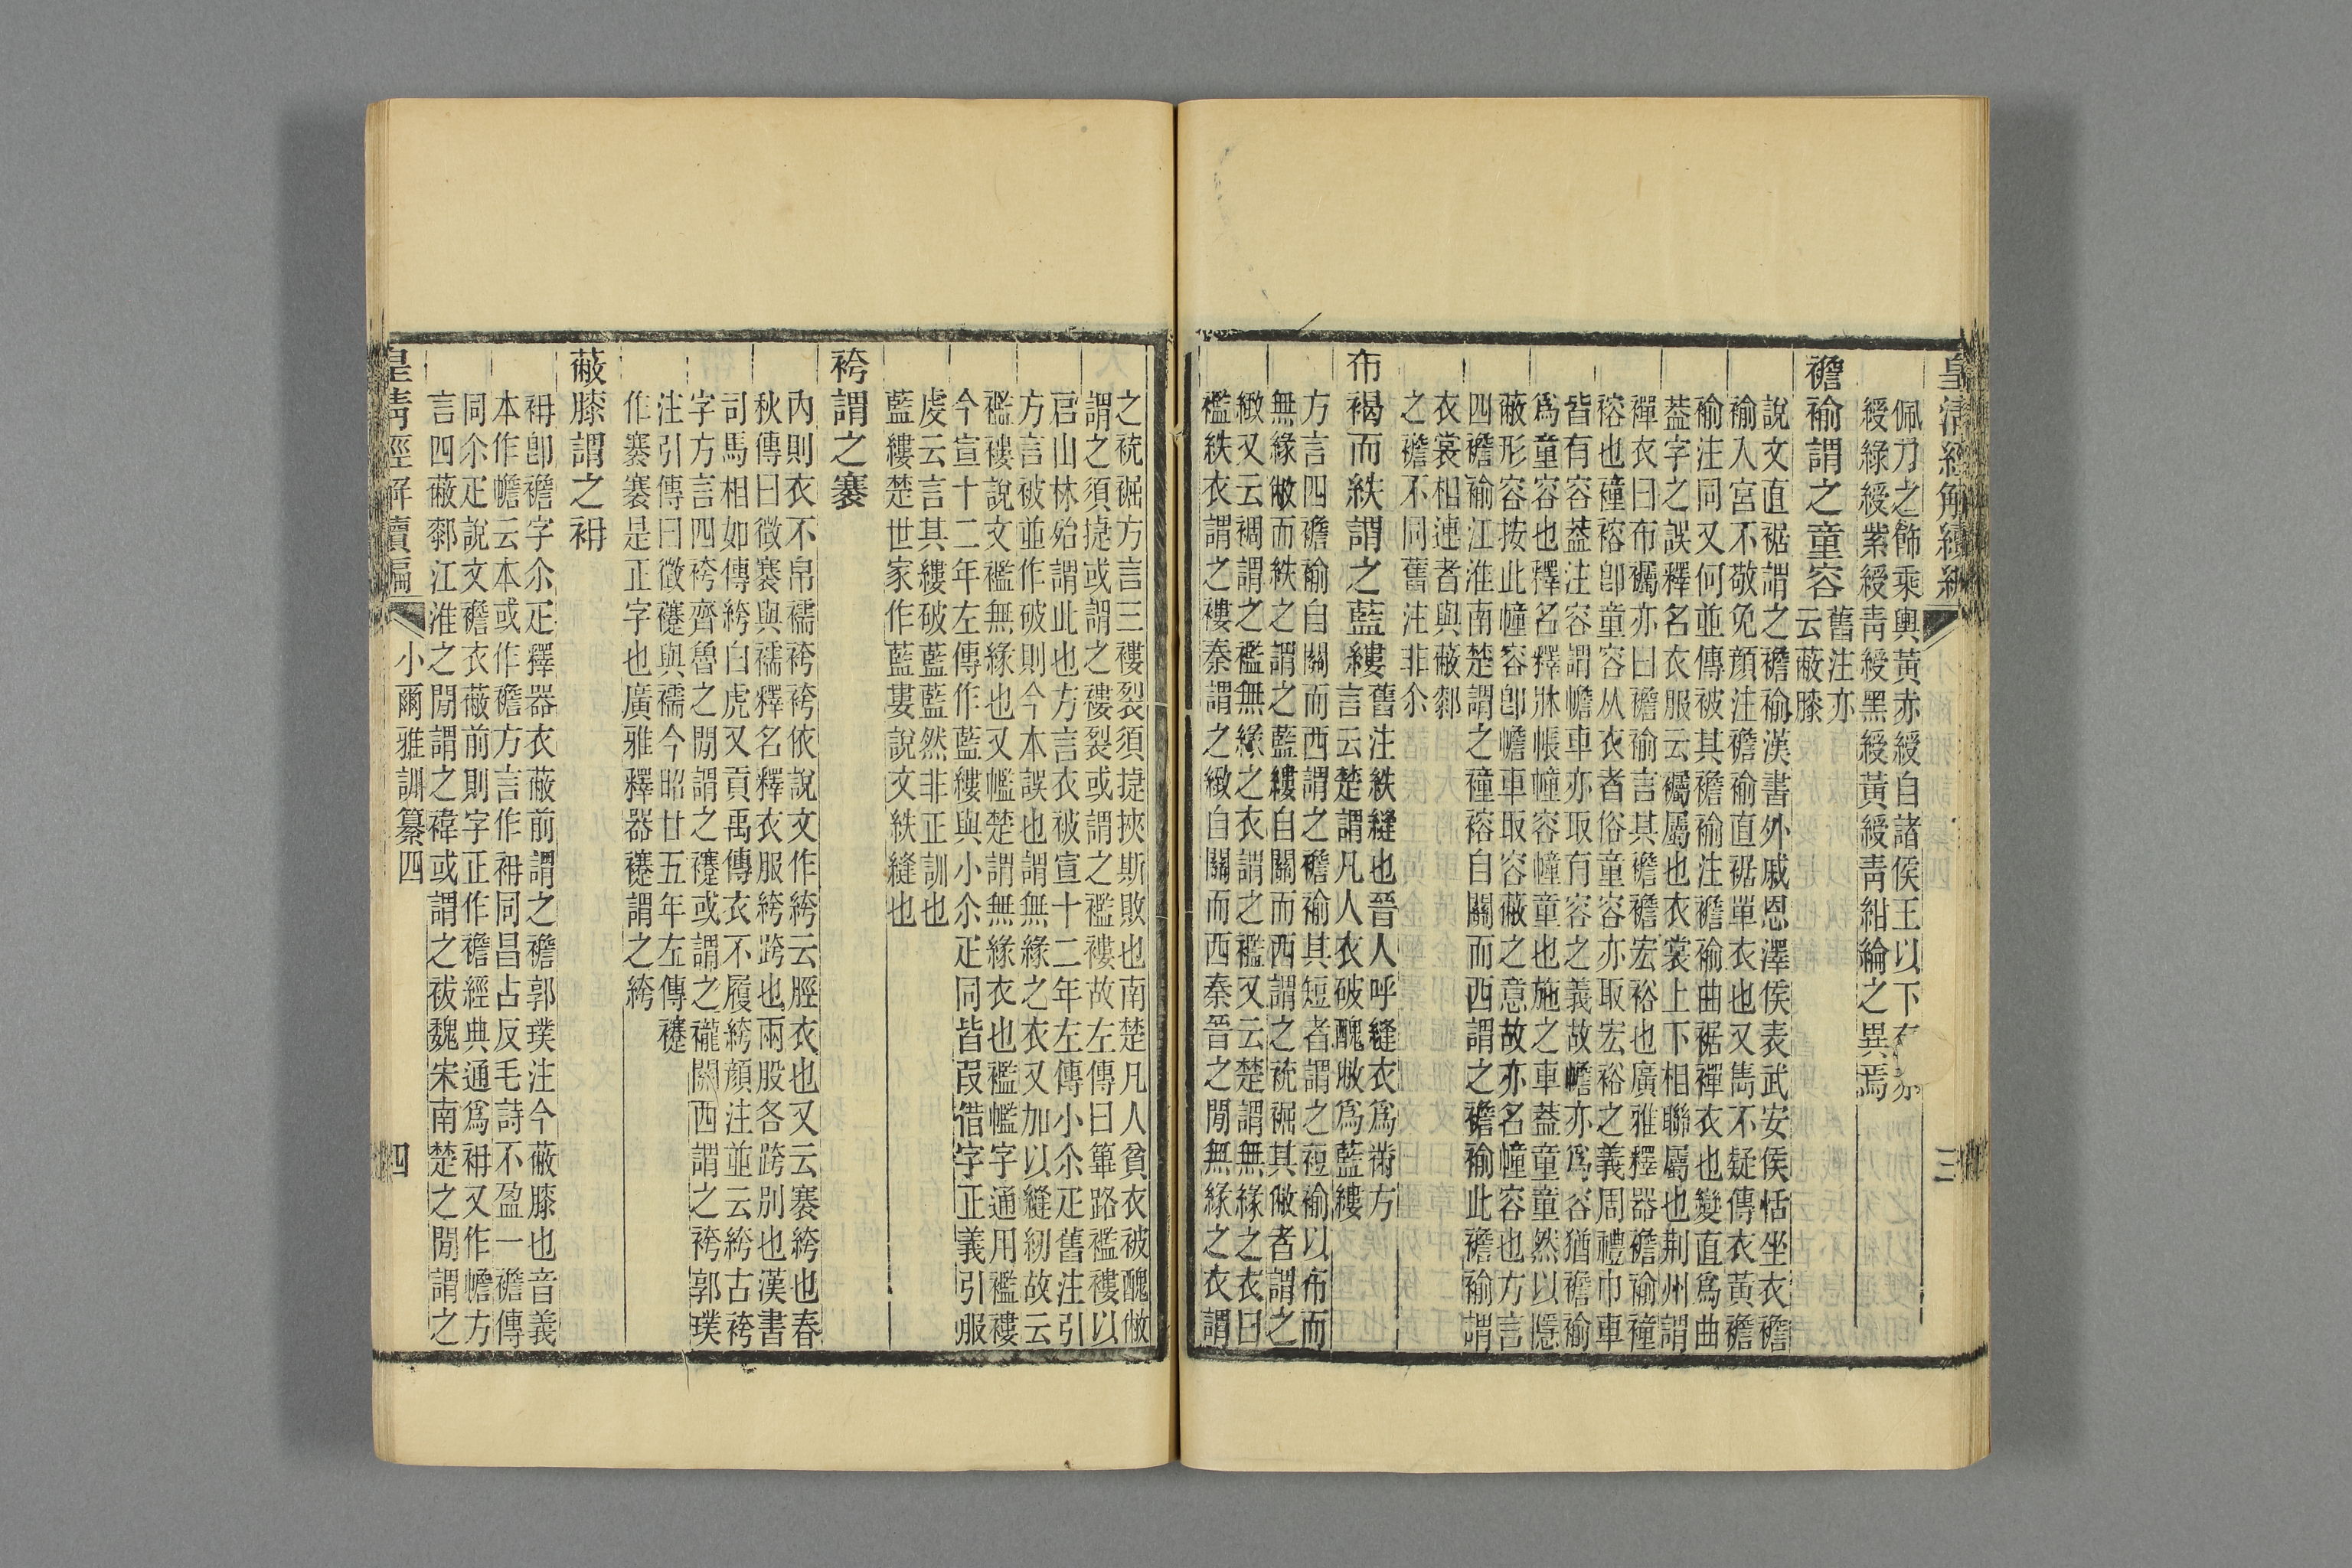 皇清經解續編
三
佩刀之飾乘輿黃赤綬自諸侯王以下有赤
綬綠綬紫綬靑綬黑綬黃綬靑紺綸之異焉
襜褕謂之童容舊注亦云蔽膝
說文直裾謂之襜褕漢書外戚恩澤侯表武安侯恬坐衣襜
褕入宮不敬免顏注襜褕直裾單衣也又雋不疑傳衣黃襜
褕注同又何並傳被其襜褕注襜褕曲裾襌衣也變直爲曲
葢字之誤釋名衣服云襡屬也衣裳上下相聯屬也荆州謂
襌衣曰布襡亦曰襜褕言其襜襜宏裕也廣雅釋器襜褕䆹
褣也䆹褣卽童容从衣者俗童容亦取宏裕之義周禮巾車
皆有容葢注容謂幨車亦取有容之義故幨亦爲容猶襜褕
爲童容也釋名釋牀帳幢容幢童也施之車葢童童然以隱
蔽形容按此幢容卽幨車取容蔽之意故亦名幢容也方言
四襜褕江淮南楚謂之䆹褣自關而西謂之襜褕此襜褕謂
衣裳相連者與蔽厀
之襜不同舊注非尒
布褐而紩謂之藍縷舊注紩縫也晉人呼縫衣爲黹方言云楚謂凡人衣破醜敝爲藍縷
方言四襜褕自關而西謂之襜褕其短者謂之裋褕以布而
無緣敝而紩之謂之藍縷自關而西謂之䘪裾其敝者謂之
緻又云裯謂之襤無緣之衣謂之襤又云楚謂無緣之衣曰
襤紩衣謂之褸秦謂之緻自關而西秦晉之閒無緣之衣謂
之䘪裾方言三褸裂須捷挾斯敗也南楚凡人貧衣被醜敝
謂之須捷或謂之褸裂或謂之襤褸故左傳曰篳路襤褸以
启山林殆謂此也方言衣被宣十二年左傳小尒疋舊注引
方言被並作破則今本誤也謂無緣之衣又加以縫紉故云
襤褸說文襤無緣也又㡮楚謂無緣衣也襤㡮字通用襤褸
今宣十二年左傳作藍縷與小尒疋同皆叚借字正義引服
虔云言其縷破藍藍然非正訓也
藍縷楚世家作藍蔞說文紩縫也
袴謂之褰
內則衣不帛襦袴袴依說文作絝云脛衣也又云褰絝也春
秋傳曰徵褰與襦釋名釋衣服絝跨也兩股各跨別也漢書
司馬相如傳絝白虎又貢禹傳衣不履絝顏注並云絝古袴
字方言四袴齊魯之閒謂之䙭或謂之襱關西謂之袴郭璞
注引傳曰徵䙭與襦今昭廿五年左傳䙭
作褰褰是正字也廣雅釋器䙭謂之絝
蔽膝謂之袡
袡卽襜字尒疋釋器衣蔽前謂之襜郭璞注今蔽膝也音義
本作幨云本或作襜方言作袡同昌占反毛詩不盈一襜傳
同尒疋說文襜衣蔽前則字正作襜經典通爲袡又作幨方
言四蔽厀江淮之閒謂之褘或謂之袚魏宋南楚之閒謂之
皇淸經解續編
小爾雅訓纂四
四